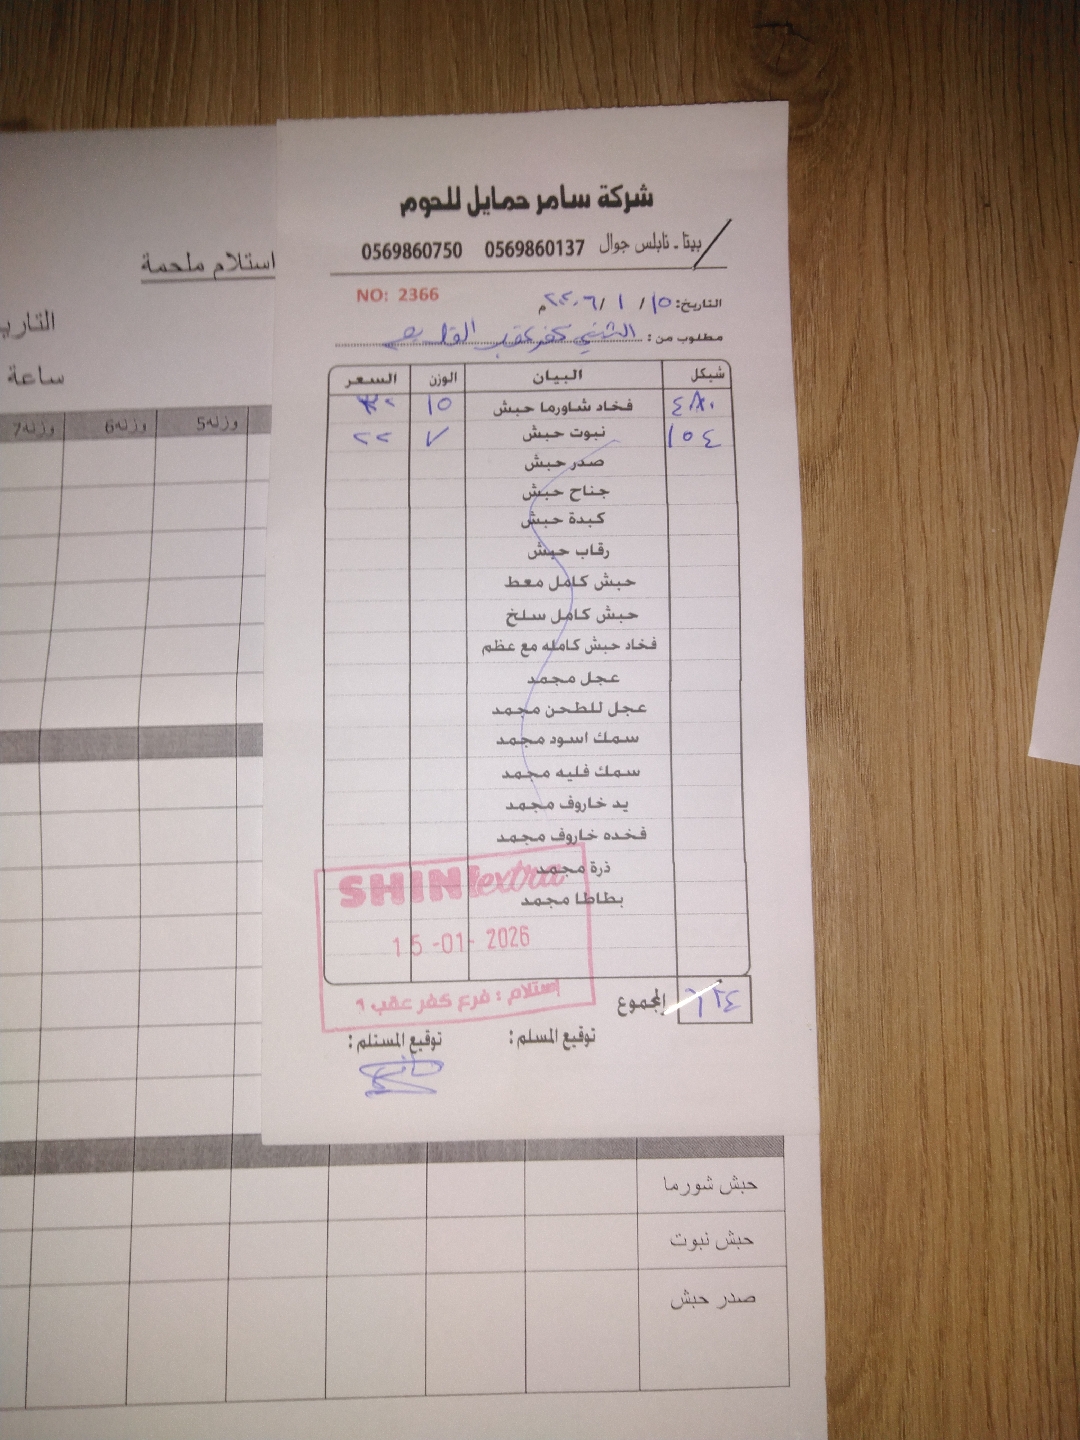 شركة سامر حمايل للحوم
بيتا - نابلس جوال 0569860137 0569860750
NO: 2366
التاريخ: ١٥ / ١ / ٢٠٢٦م
مطلوب من : الشني كفر عقب
شيكل البيان الوزن السعر
٤٨٠ فخاد شاورما حبش ١٥ ٣٢
١٥٤ نبوت حبش ٧ ٢٢
صدر حبش
جناح حبش
كبدة حبش
رقاب حبش
حبش كامل معط
حبش كامل سلخ
فخاد حبش كامله مع عظم
عجل مجمد
عجل للطحن مجمد
سمك اسود مجمد
سمك فليه مجمد
يد خاروف مجمد
فخده خاروف مجمد
ذرة مجمد
بطاطا مجمد
SHINI extra
15-01-2026
إستلام : فرع كفر عقب ١
المجموع ٦٣٤
توقيع المسلم : توقيع المستلم :
استلام ملحمة
التاري
ساعة
وزنه5 وزنه6 وزنه7
حبش شورما
حبش نبوت
صدر حبش